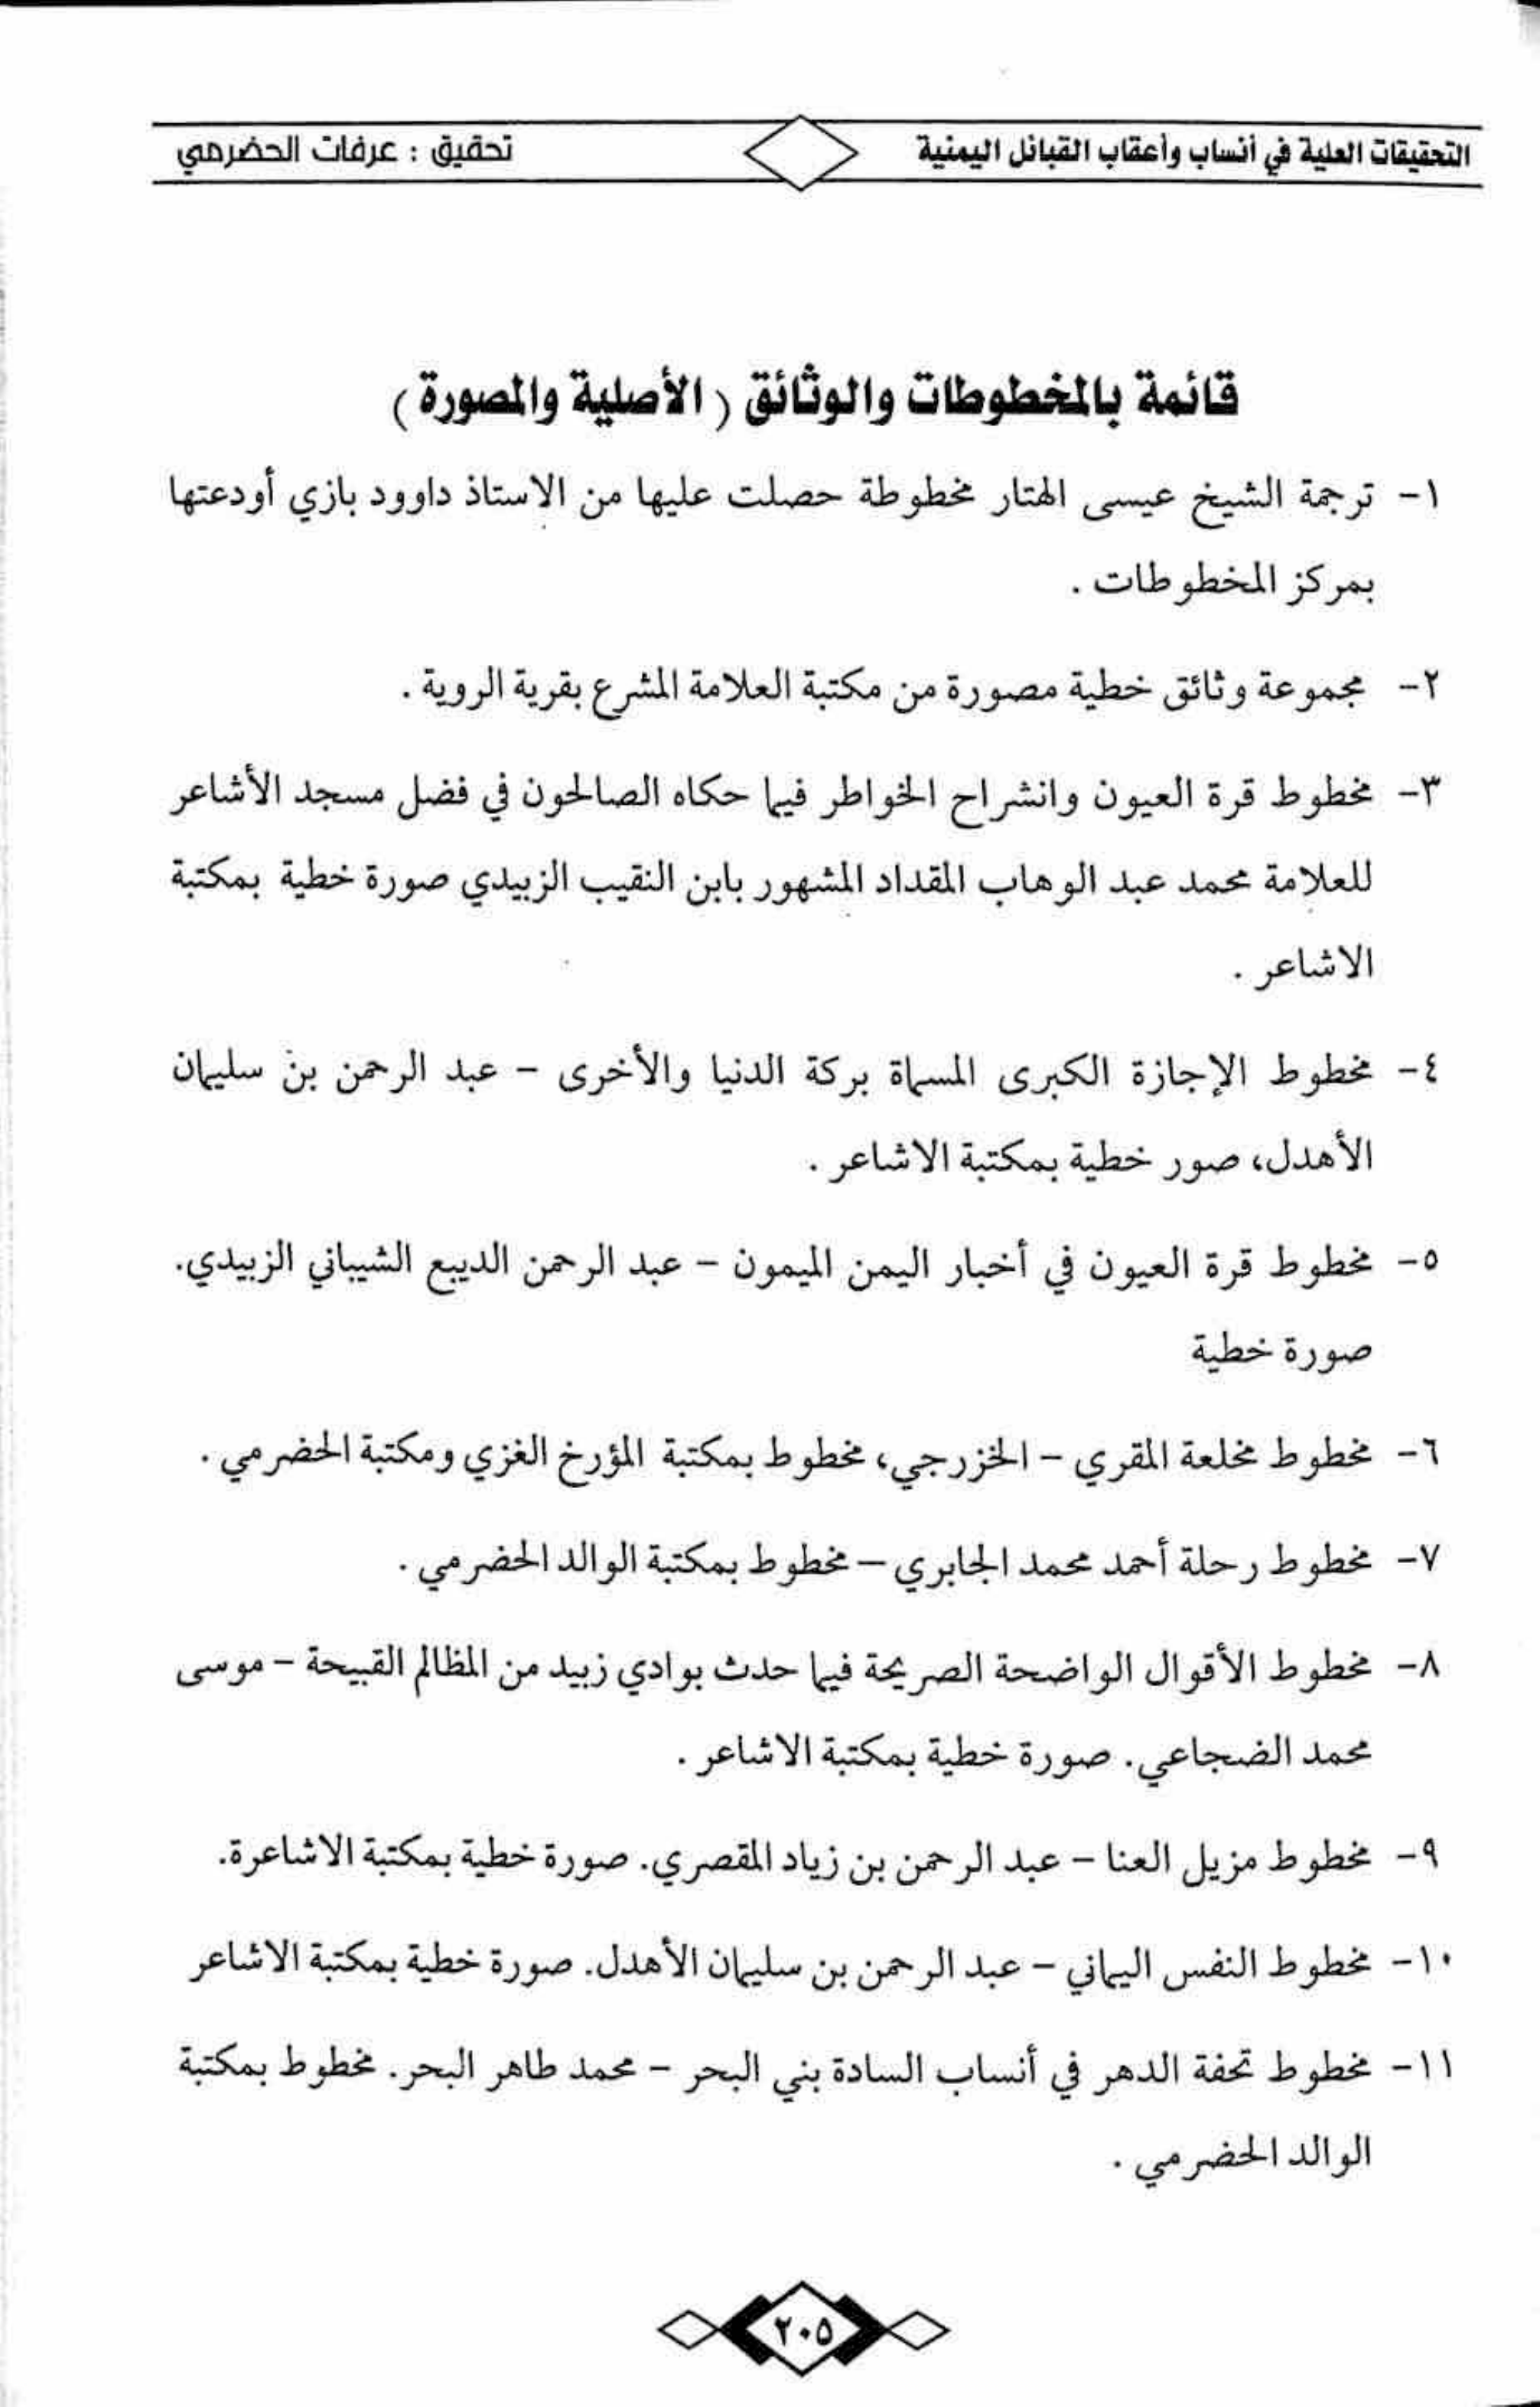 التحقيقات العلية في أنساب وأعقاب القبائل اليمنية
تحقيق : عرفات الحضرمي
قائمة بالمخطوطات والوثائق ( الأصلية والمصورة )
١- ترجمة الشيخ عيسى الهتار مخطوطة حصلت عليها من الاستاذ داوود بازي أودعتها
بمركز المخطوطات .
٢- مجموعة وثائق خطية مصورة من مكتبة العلامة المشرع بقرية الروية .
٣- مخطوط قرة العيون وانشراح الخواطر فيما حكاه الصالحون في فضل مسجد الأشاعر
للعلامة محمد عبد الوهاب المقداد المشهور بابن النقيب الزبيدي صورة خطية بمكتبة
الاشاعر .
٤- مخطوط الإجازة الكبرى المسماة بركة الدنيا والأخرى – عبد الرحمن بن سليمان
الأهدل، صور خطية بمكتبة الاشاعر .
٥- مخطوط قرة العيون في أخبار اليمن الميمون – عبد الرحمن الديبع الشيباني الزبيدي.
صورة خطية
٦- مخطوط مخلعة المقري – الخزرجي، مخطوط بمكتبة المؤرخ الغزي ومكتبة الحضرمي .
٧- مخطوط رحلة أحمد محمد الجابري – مخطوط بمكتبة الوالد الحضرمي .
٨- مخطوط الأقوال الواضحة الصريحة فيما حدث بوادي زبيد من المظالم القبيحة – موسى
محمد الضجاعي. صورة خطية بمكتبة الاشاعر .
٩- مخطوط مزيل العنا – عبد الرحمن بن زياد المقصري. صورة خطية بمكتبة الاشاعرة.
١٠- مخطوط النفس اليماني – عبد الرحمن بن سليمان الأهدل. صورة خطية بمكتبة الاشاعر
١١- مخطوط تحفة الدهر في أنساب السادة بني البحر – محمد طاهر البحر. مخطوط بمكتبة
الوالد الحضرمي .
٢٠٥